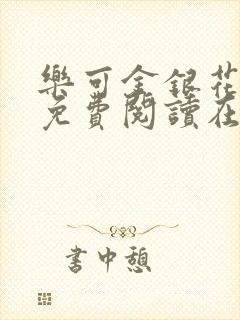 樂可金銀花
免費閱讀在
書中憩